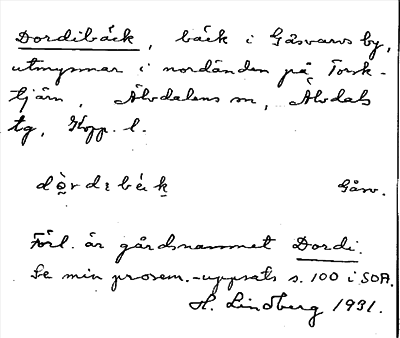 Dordibäck, bäck i Gåsvarvs by,
utmynnar i nordänden på Torsk-
tjärn, Älvdalens sn, Älvdals
tg, Kopp. l.
Gåsv.
Förl. är gårdsnamnet Dordi.
Se min prosem.-uppsats s. 100 i SOA.
H. Lindberg 1931.